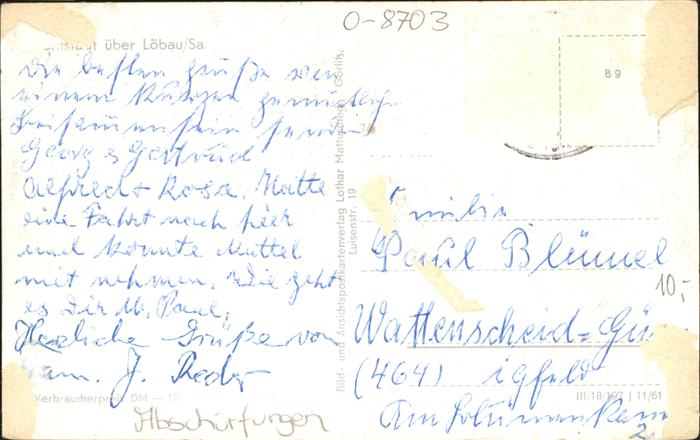 O-8703
über Löbau/Sa.
die besten Grüße von
einem kurzen gemütlichen
Beisammensein senden
Georg & Gertrud
Alfred & Rosa. Hatte
eine Fahrt nach hier
und konnte Muttel
mit nehmen. Wie geht
es Dir lb. Paul.
Herzliche Grüße von
Fam. J.
Verbraucherpreis DM —.10
Abschürfungen
Bild- und Ansichtspostkartenverlag Lothar Görlitz,
Luisenstr. 19
B 9
Familie
Paul Blümel
10,-
Wattenscheid-Gü
(464) igfeld
Am
2
III/18/197 J 11/61